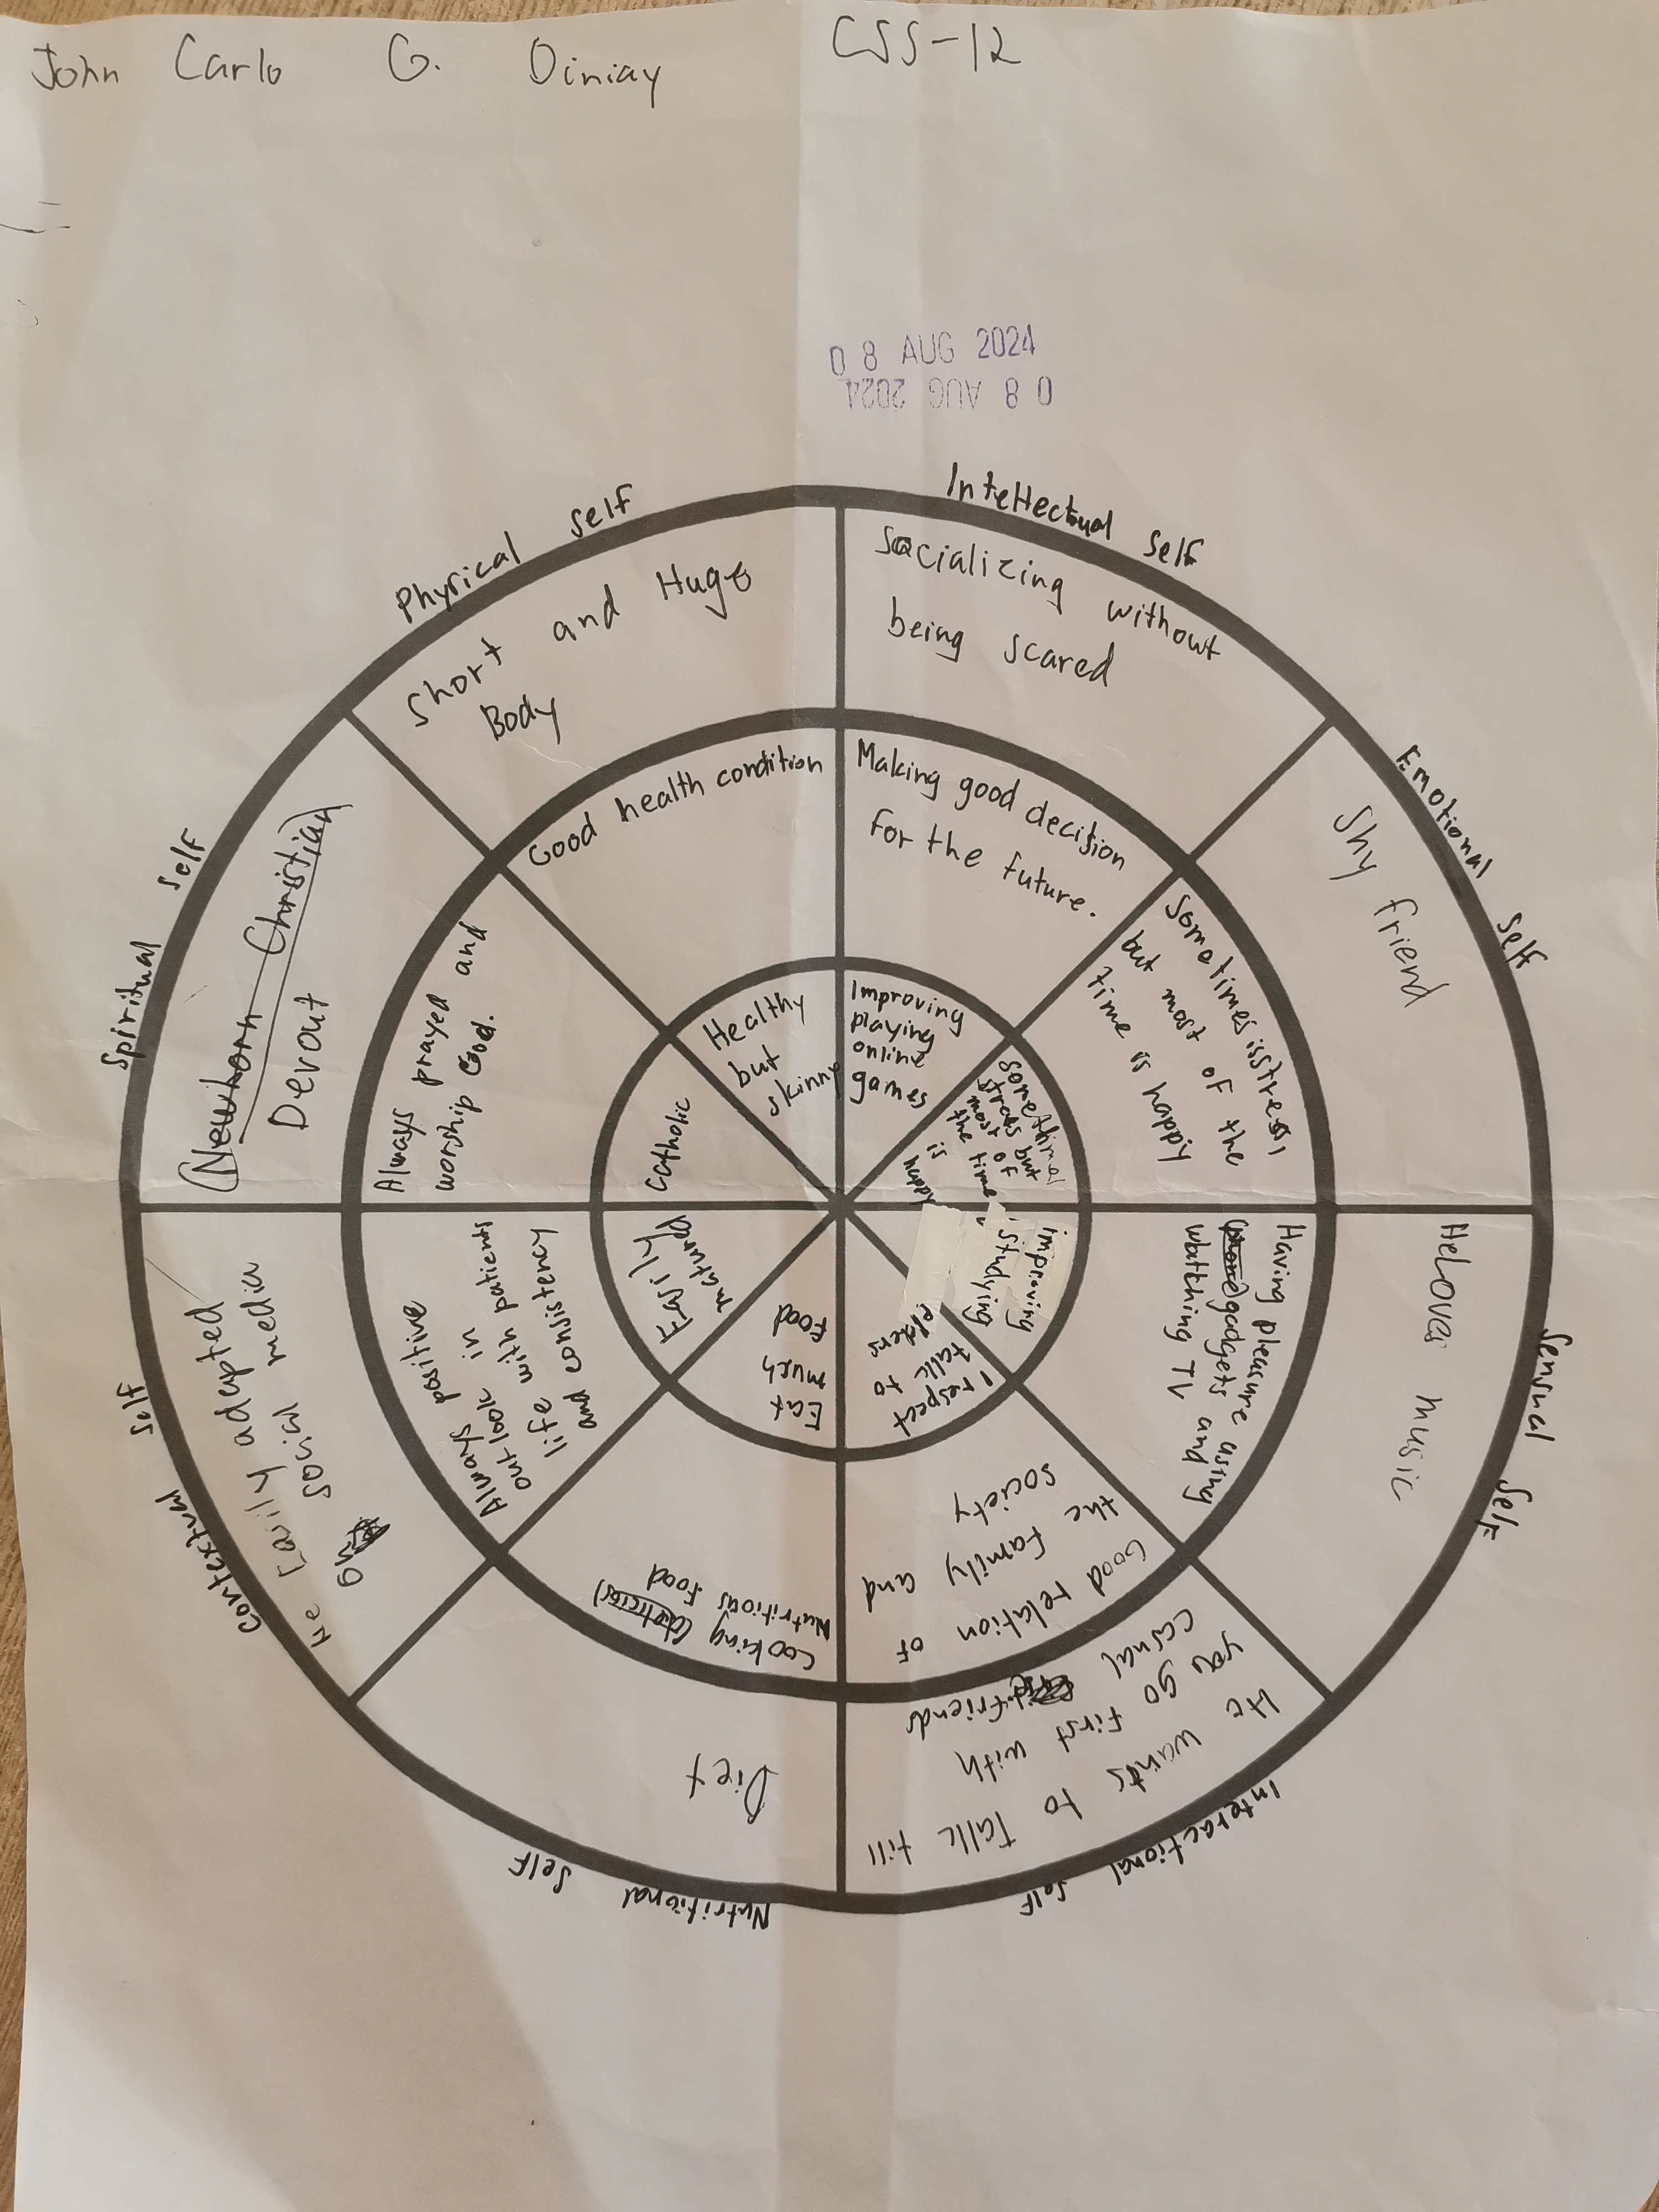 John Carlo G. Diniay
CSS-12
08 AUG 2024
08 AUG 2024
Physical Self
Short and Huge
Body
Good health condition
Healthy
but
skinny
Intellectual Self
Socializing without
being scared
Making good decision
for the future.
Improving
playing
online
games
Emotional Self
Shy friend
Sometimes is stress,
but most of the
time is happy
but
most of
the time
is
happy
Sensual Self
He loves music
Having pleasure using
gadgets and
watching TV
improving
studying
Interactional Self
He wants to talk till
you go first with
casual friends
Good relation of
the family and
society
I respect
talk to
elders
Nutritional Self
Diet
Cooking
Nutritious food
Eat
much
Food
Contextual Self
He Easily adapted
on social media
Always positive
outlook in
life with patients
and consistency
Easily
matured
Spiritual Self
Newborn Christian
Devout
Always prayed and
worship God.
Catholic